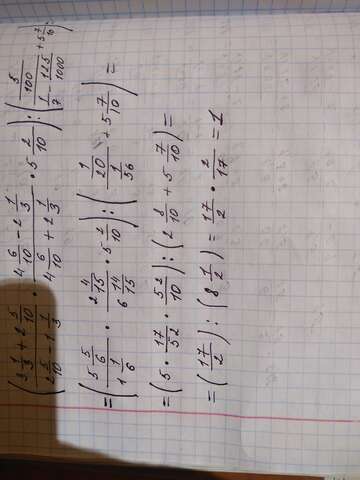 ((3 1/3 + 2 5/10)/(2 5/10 − 1 1/3) · (4 6/10 − 2 1/3)/(4 6/10 + 2 1/3) · 5 2/10) : ((5/100)/(1/7 − 125/1000) + 5 7/10) =
= ((5 5/6)/(1 1/6) · (2 4/15)/(6 14/15) · 5 2/10) : ((1/20)/(1/56) + 5 7/10) =
= (5 · 17/52 · 52/10) : (2 8/10 + 5 7/10) =
= (17/2) : (8 1/2) = 17/2 · 2/17 = 1